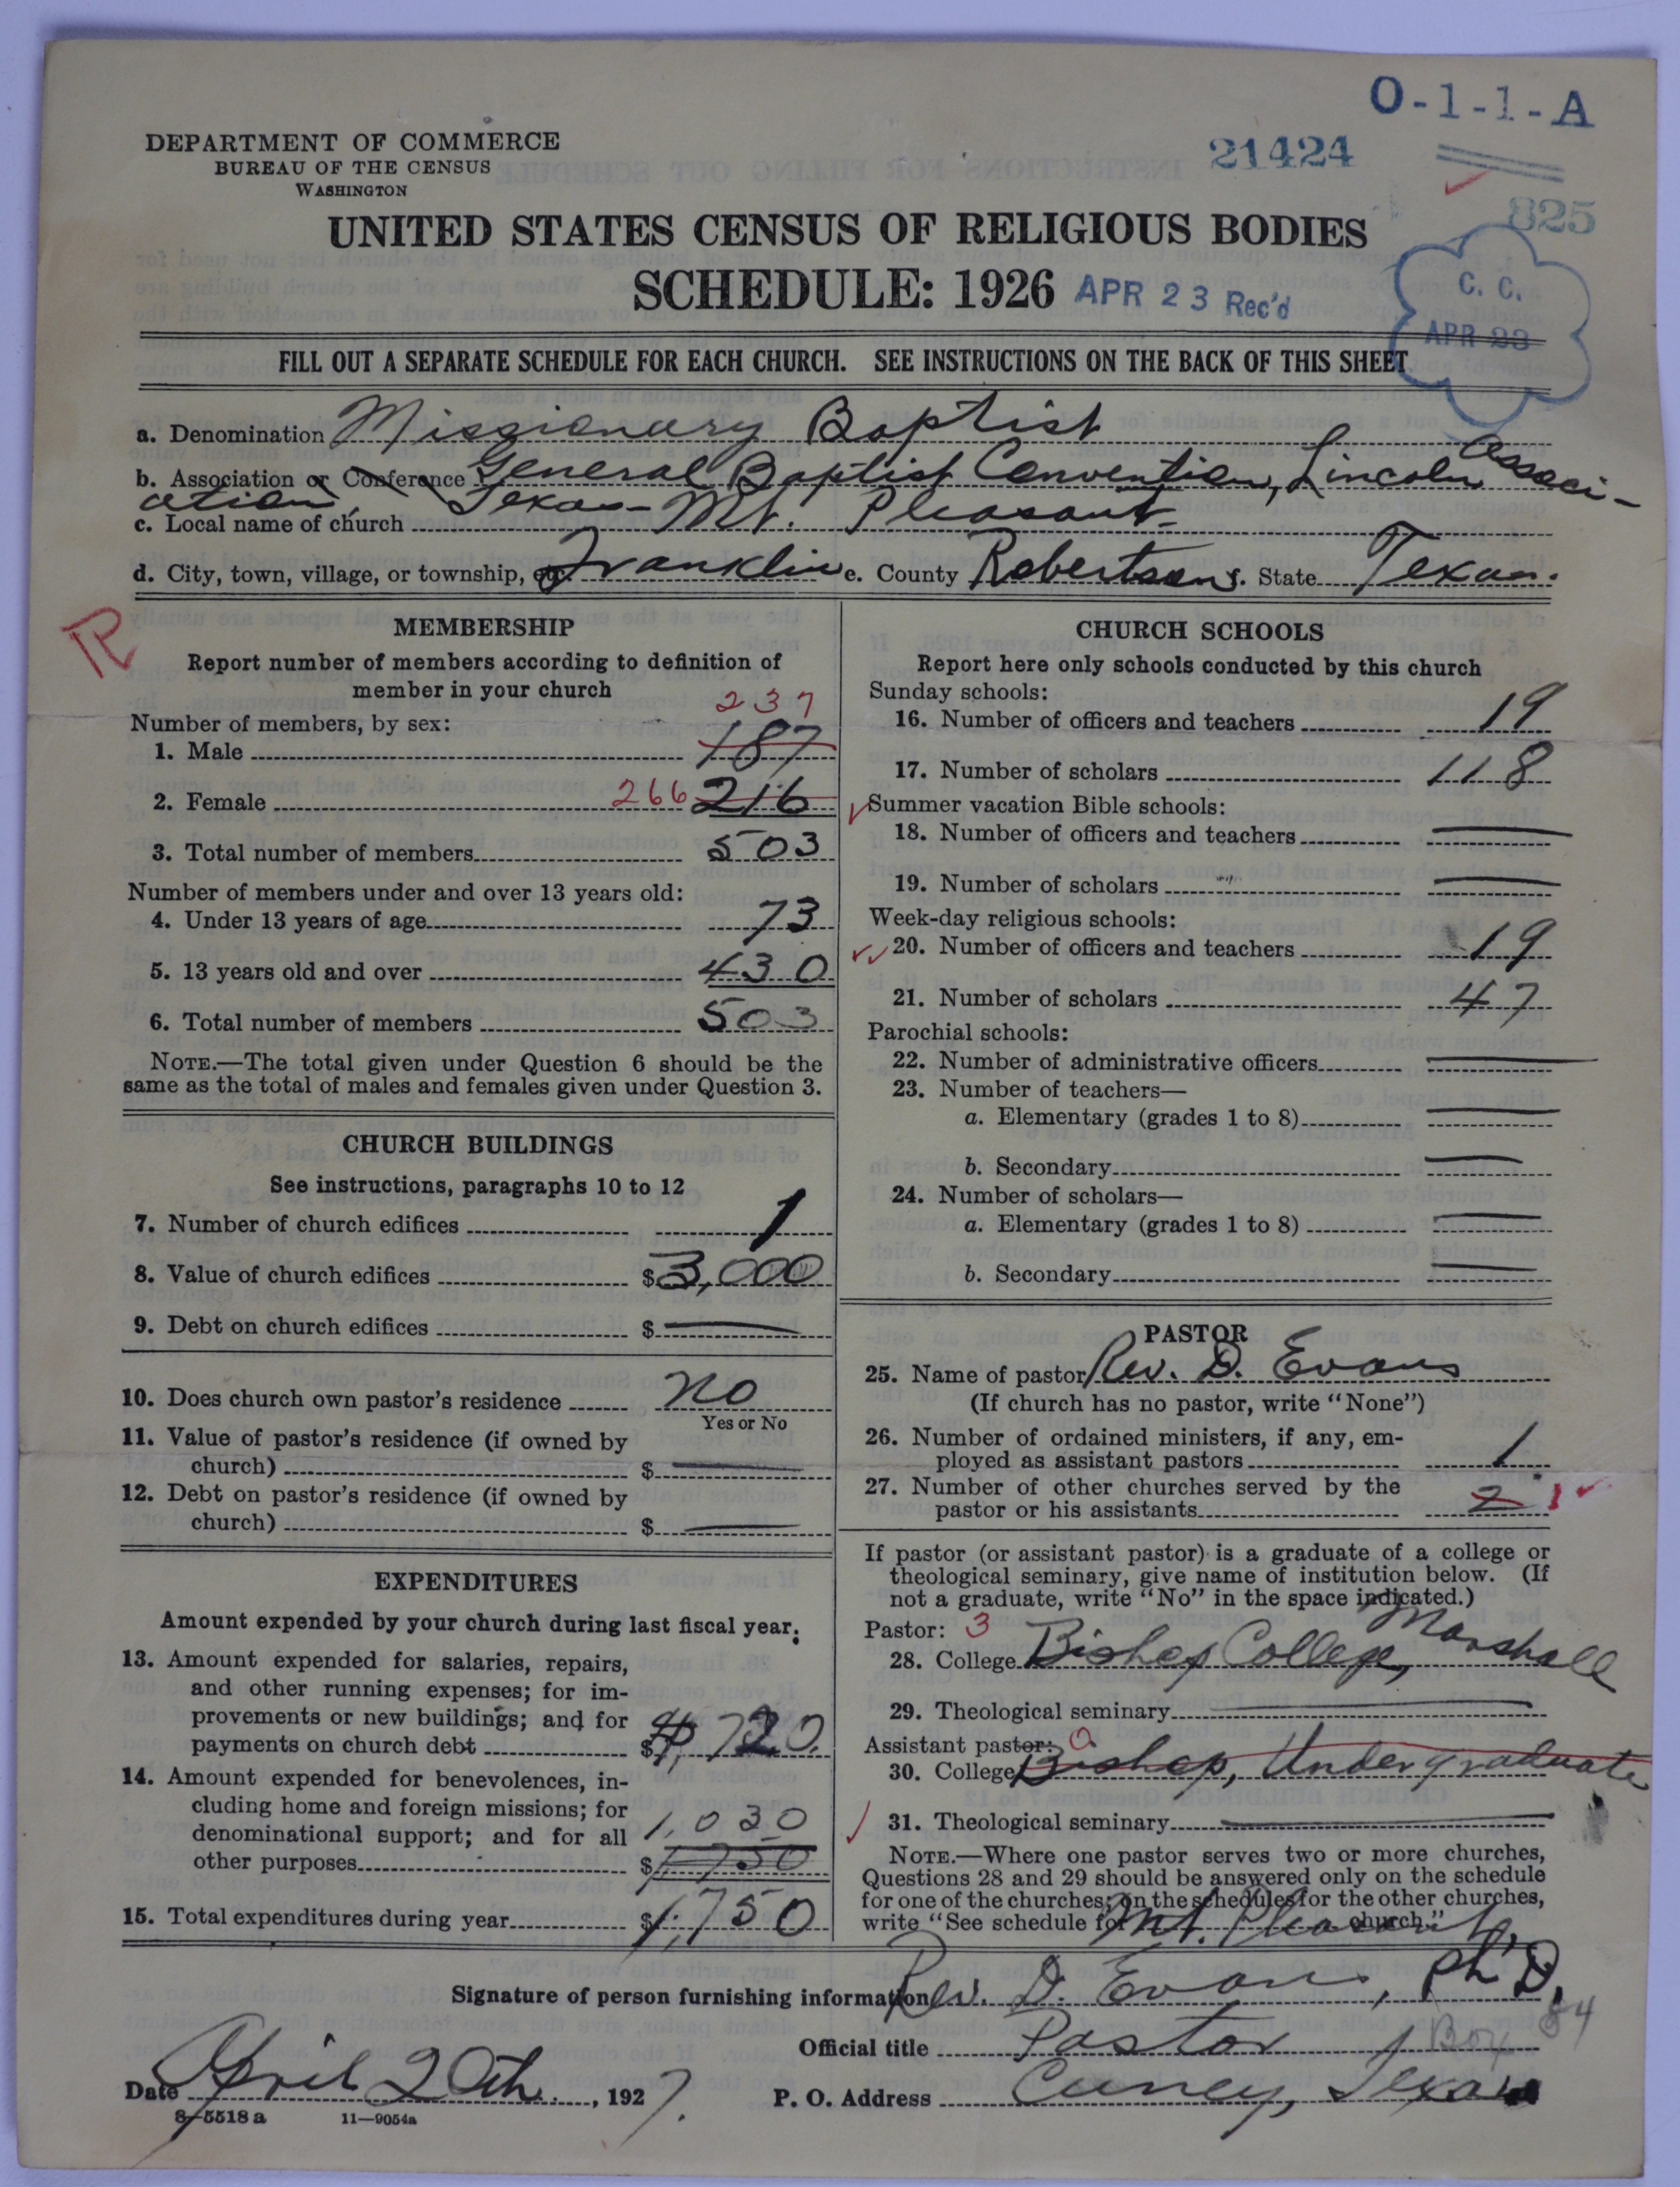 O-1-1-A
DEPARTMENT OF COMMERCE
BUREAU OF THE CENSUS
WASHINGTON
21424
825
UNITED STATES CENSUS OF RELIGIOUS BODIES
SCHEDULE: 1926
APR 23 Rec'd
C. C.
APR 23
FILL OUT A SEPARATE SCHEDULE FOR EACH CHURCH. SEE INSTRUCTIONS ON THE BACK OF THIS SHEET
a. Denomination Missionary Baptist
b. Association or Conference General Baptist Convention, Lincoln Associ-
ation, Texas-
c. Local name of church Mt. Pleasant-
d. City, town, village, or township, etc. Franklin e. County Robertson f. State Texas.
R
MEMBERSHIP
Report number of members according to definition of
member in your church
Number of members, by sex:
237
1. Male 187
2. Female 266 216
3. Total number of members 503
Number of members under and over 13 years old:
4. Under 13 years of age 73
5. 13 years old and over 430
6. Total number of members 503
NOTE.—The total given under Question 6 should be the
same as the total of males and females given under Question 3.
CHURCH BUILDINGS
See instructions, paragraphs 10 to 12
7. Number of church edifices 1
8. Value of church edifices $3,000
9. Debt on church edifices $ —
10. Does church own pastor's residence No
Yes or No
11. Value of pastor's residence (if owned by
church) $ —
12. Debt on pastor's residence (if owned by
church) $ —
EXPENDITURES
Amount expended by your church during last fiscal year:
13. Amount expended for salaries, repairs,
and other running expenses; for im-
provements or new buildings; and for
payments on church debt $ 720.
14. Amount expended for benevolences, in-
cluding home and foreign missions; for
denominational support; and for all 1,030
other purposes $1750
15. Total expenditures during year $1,750
CHURCH SCHOOLS
Report here only schools conducted by this church
Sunday schools:
16. Number of officers and teachers 19
17. Number of scholars 118
Summer vacation Bible schools:
18. Number of officers and teachers —
19. Number of scholars —
Week-day religious schools:
20. Number of officers and teachers 19
21. Number of scholars 47
Parochial schools:
22. Number of administrative officers —
23. Number of teachers—
a. Elementary (grades 1 to 8) —
b. Secondary —
24. Number of scholars—
a. Elementary (grades 1 to 8) —
b. Secondary —
PASTOR
25. Name of pastor Rev. D. Evans
(If church has no pastor, write "None")
26. Number of ordained ministers, if any, em-
ployed as assistant pastors 1
27. Number of other churches served by the
pastor or his assistants 2 1
If pastor (or assistant pastor) is a graduate of a college or
theological seminary, give name of institution below. (If
not a graduate, write "No" in the space indicated.)
Pastor: 3
28. College Bishop College, Marshall
29. Theological seminary —
Assistant pastor: 0
30. College Bishop, Undergraduate
31. Theological seminary —
NOTE.—Where one pastor serves two or more churches,
Questions 28 and 29 should be answered only on the schedule
for one of the churches; on the schedules for the other churches,
write "See schedule for Mt. Pleasant, church."
Signature of person furnishing information Rev. D. Evans, Ph'D,
Official title Pastor Box 84
Date April 20th, 1927. P. O. Address Cuney, Texas
8—5518 a 11—9054a